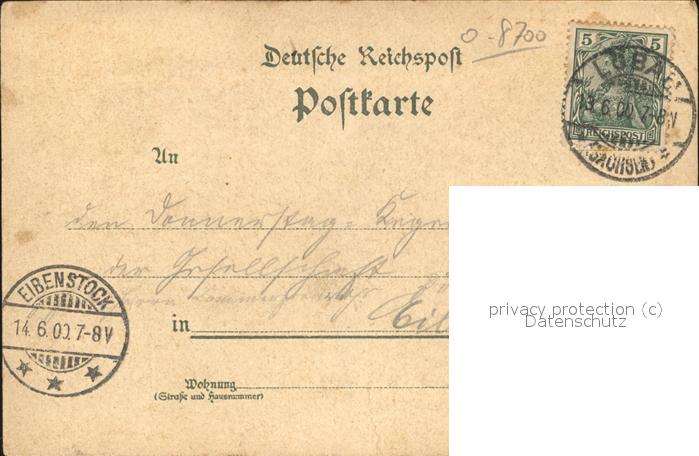 0-8700
Deutsche Reichspost
Postkarte
5 5
REICHSPOST
LÖBAU
13.6.00.7-8V
(SACHSEN)
An
den Donnerstag-
der Gesellschaft
Herrn
in
EIBENSTOCK
14.6.00.7-8V
Wohnung
(Straße und Hausnummer)
privacy protection (c)
Datenschutz